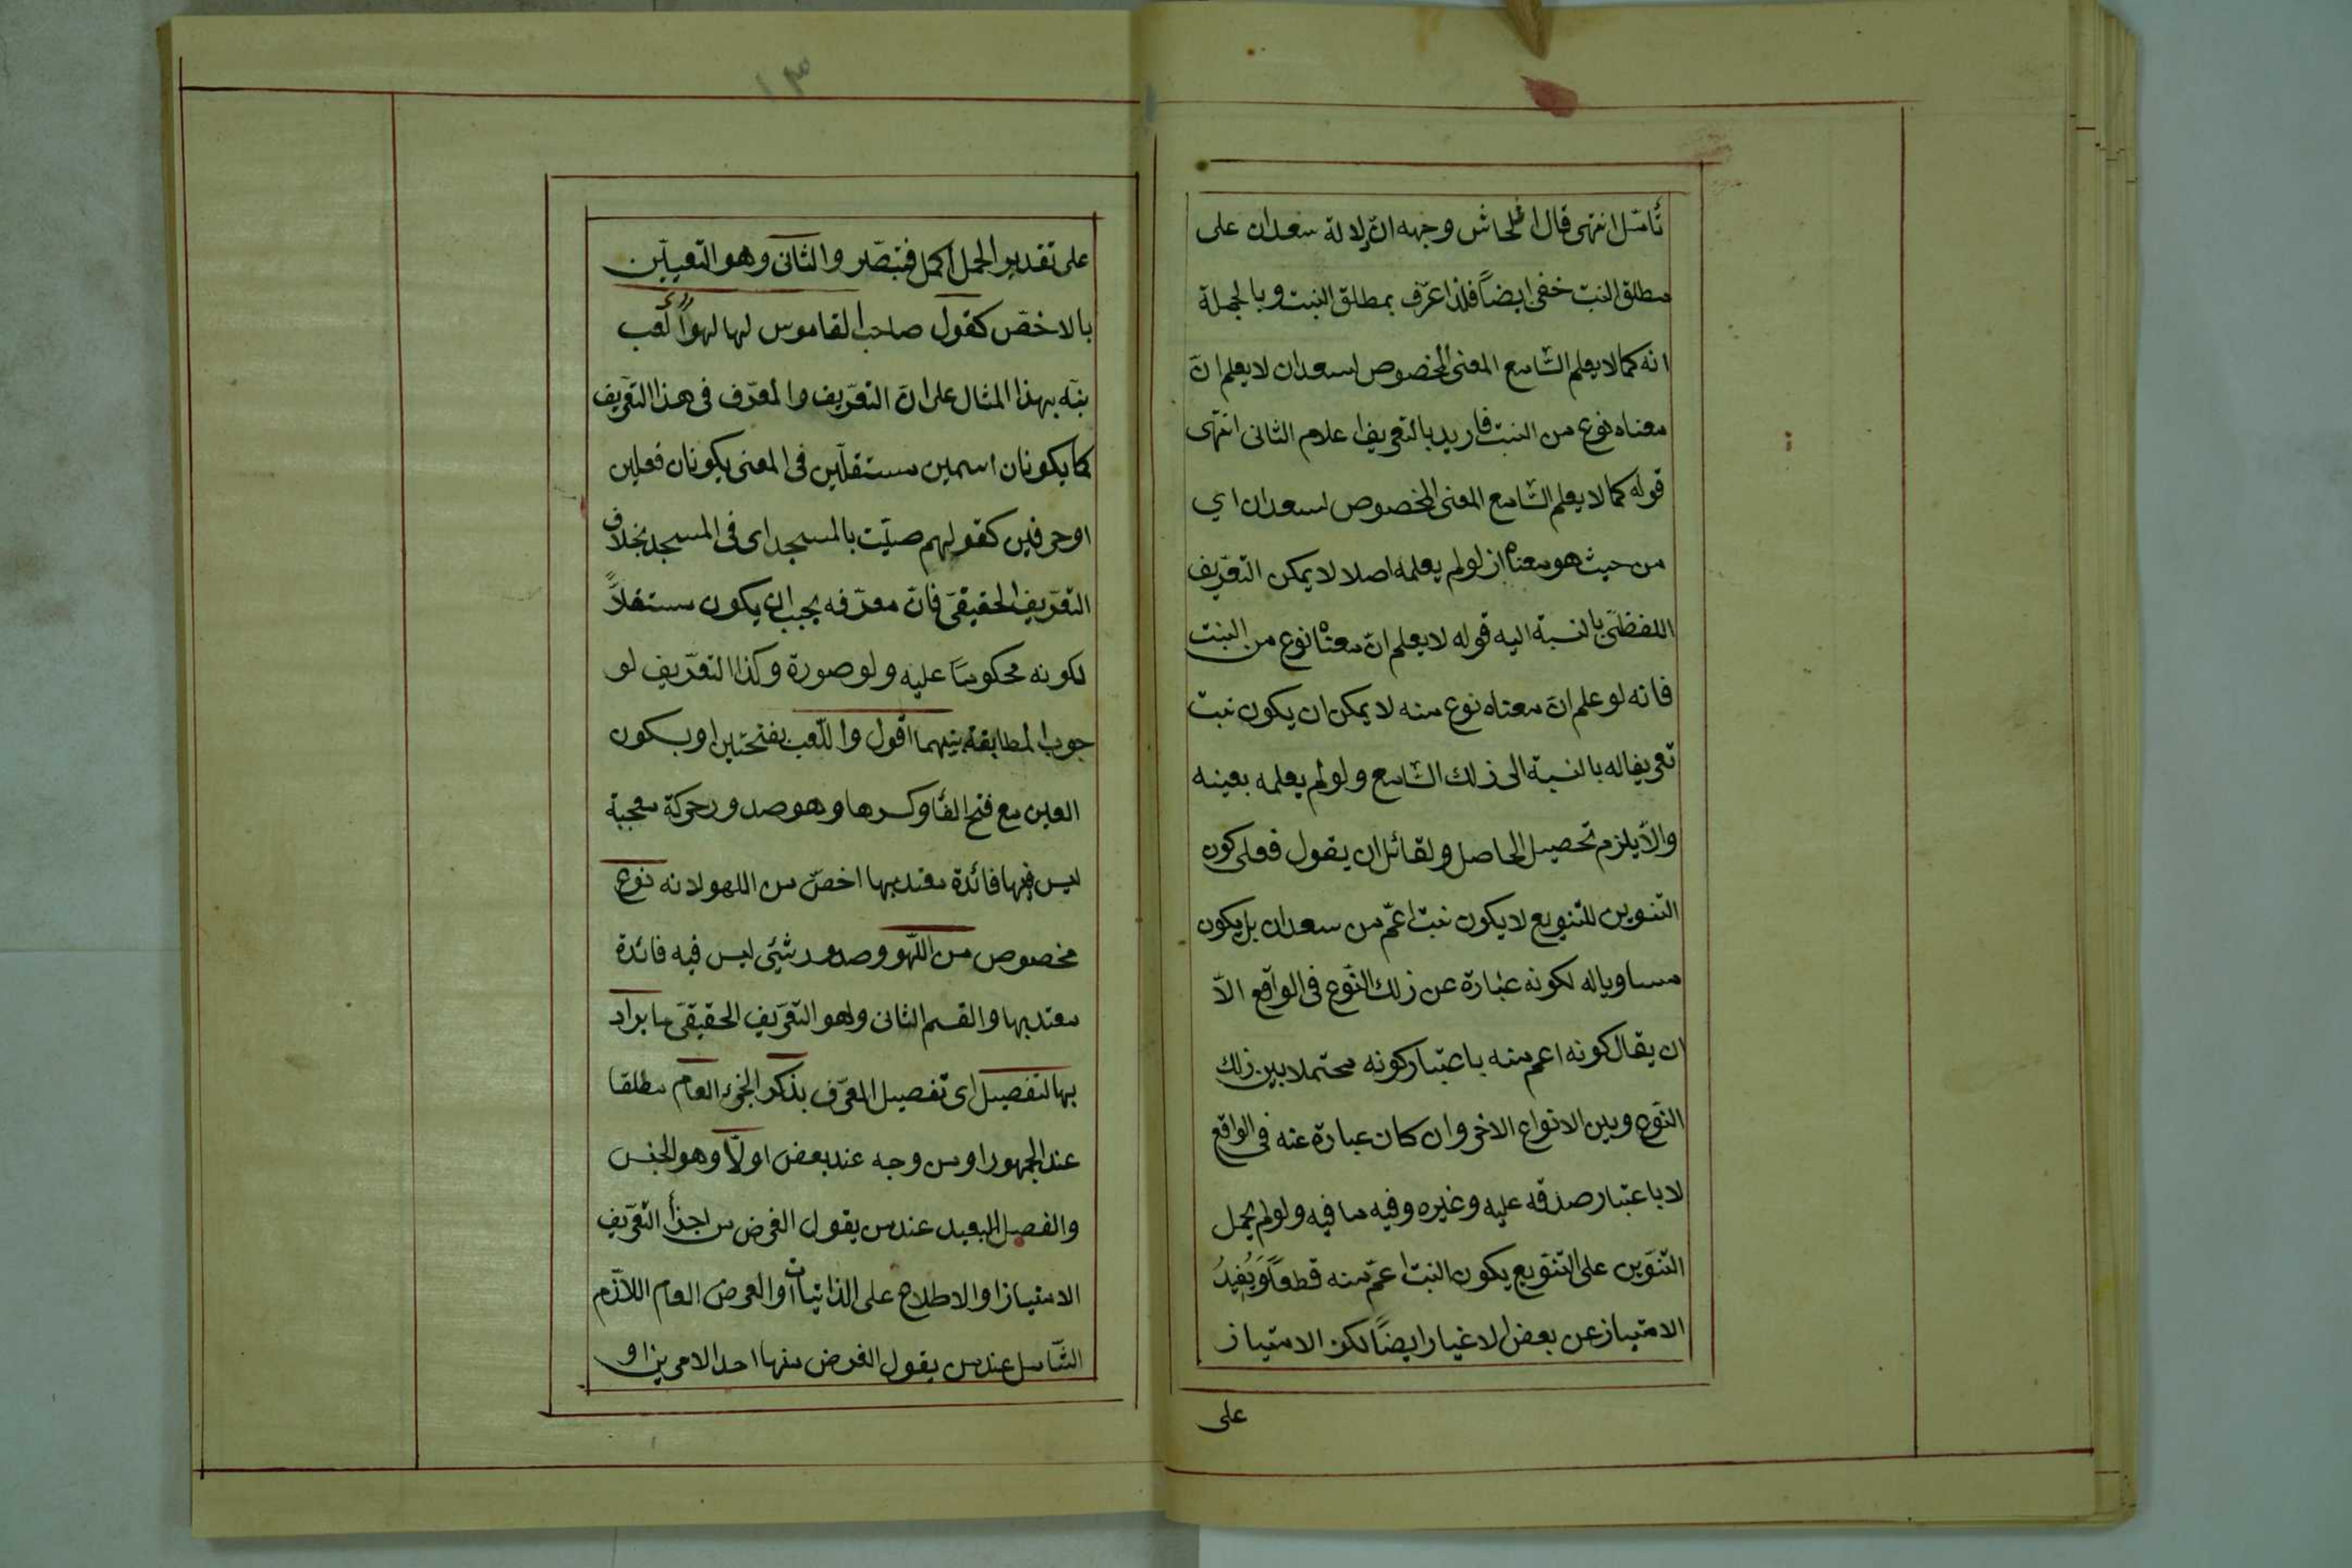 تأمّل انتهى قال الحاش وجهه انّ دلالة سعدان على
مطلق النبت خفى ايضاً فلذا عرّف بمطلق النبت وبالجملة
انه كما لا يعلم السّامع المعنى المخصوص لسعدان لا يعلم انّ
معناه نوع من النبت فاريد بالتعريف اعلام الثانى انتهى
قوله كما لا يعلم السّامع المعنى المخصوص لسعدان اي
من حيث هو معناه اذ لو لم يعلمه اصلا لا يمكن التعّريف
اللفظىّ بالنسبة اليه قوله لا يعلم انّ معناه نوع من النبت
فانه لو علم انّ معناه نوع منه لا يمكن ان يكون نبت
تعريفا له بالنسبة الى ذلك السّامع ولو لم يعلمه بعينه
والّا يلزم تحصيل الحاصل ولقائل ان يقول فعلى كون
التنوين للتنويع لا يكون نبت اعمّ من سعدان بل يكون
مساويا له لكونه عبارة عن ذلك النّوع فى الواقع الّا
ان يقال كونه اعم منه باعتبار كونه محتملا بين ذلك
النّوع وبين الانواع الاخر وان كان عبارة عنه فى الواقع
لا باعتبار صدقه عليه وغيره وفيه ما فيه ولو لم يحمل
التنّوين على التنّويع يكون النبت اعمّ منه قطعاً وَيُفيدُ
الامتياز عن بعض الاغيار ايضاً لكن الامتياز
على
١٣
على تقدير الحمل اكمل فتبصّر والثانى وهو التعييّن
بالاخصّ كقول صاحب القاموس لها لهواً لعب
نبّه بهذا المثال على انّ التعّريف والمعرّف فى هذا التعّريف
كما يكونان اسمين مستقلّين فى المعنى يكونان فعلين
او حرفين كقولهم صلّيت بالمسجد اى فى المسجد بخلاف
التعّريف الحقيقىّ فانّ معرّفه يجب ان يكون مستقلاً
لكونه محكوماً عليه ولو صورة وكذا التعّريف لو
جوب المطابقة بينهما اقول واللّعب بفتحتين او بسكون
العين مع فتح الفاء وكسرها وهو صدور حركة معجبة
ليس فيها فائدة معتد بها اخصّ من اللهو لانه نوع
مخصوص من اللّهو وصدور شئي ليس فيه فائدة
معتد بها والقسم الثانى وهو التعّريف الحقيقىّ ما يراد
بها التفصيل اى تفصيل المعّرف بذكر الجزء العام مطلقا
عند الجمهور او من وجه عند بعض اولّاً وهو الجنس
والفصل البعيد عند من يقول الغرض من اجزأ التعّريف
الامتياز او الاطلاع على الذاتيات او العرض العام اللاّزم
الشّامل عند من يقول الغرض منها احد الامرين او